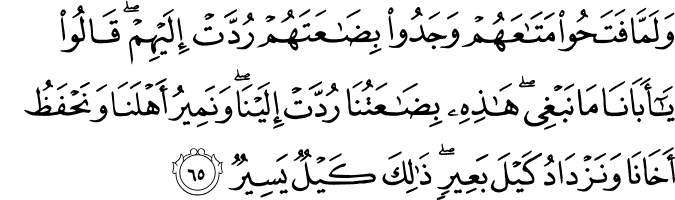 وَلَمَّا فَتَحُوا۟ مَتَـٰعَهُمْ وَجَدُوا۟ بِضَـٰعَتَهُمْ رُدَّتْ إِلَيْهِمْ ۖ قَالُوا۟
يَـٰٓأَبَانَا مَا نَبْغِى ۖ هَـٰذِهِۦ بِضَـٰعَتُنَا رُدَّتْ إِلَيْنَا ۖ وَنَمِيرُ أَهْلَنَا وَنَحْفَظُ
أَخَانَا وَنَزْدَادُ كَيْلَ بَعِيرٍ ۖ ذَٰلِكَ كَيْلٌ يَسِيرٌ ٦٥